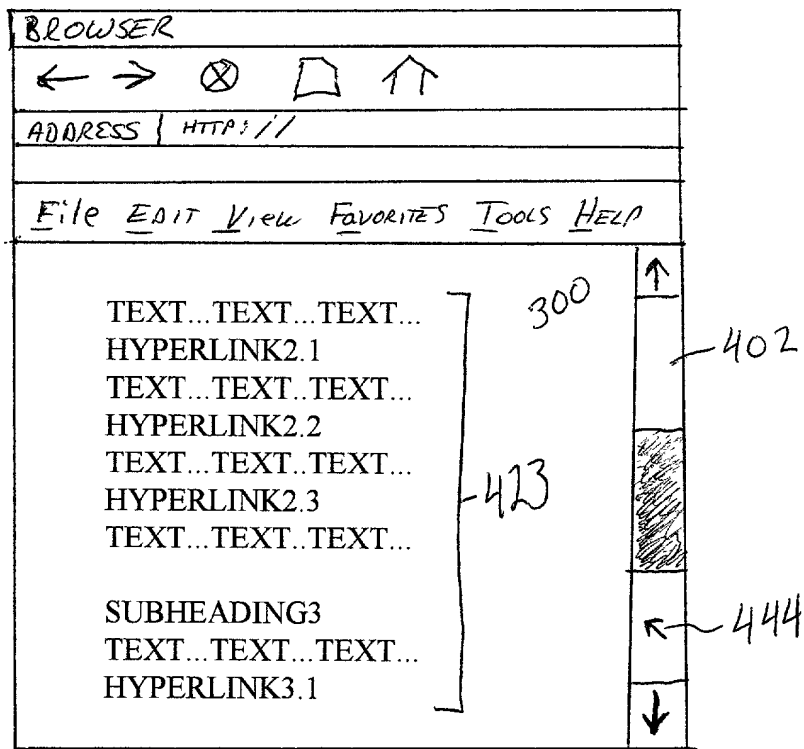 BROWSER
ADDRESS | HTTP://
File EDIT View FAVORITES TOOLS HELP
300
TEXT...TEXT...TEXT...
HYPERLINK2.1
402
TEXT...TEXT..TEXT...
HYPERLINK2.2
TEXT...TEXT..TEXT...
423
HYPERLINK2.3
TEXT...TEXT..TEXT...
SUBHEADING3
444
TEXT...TEXT...TEXT...
HYPERLINK3.1